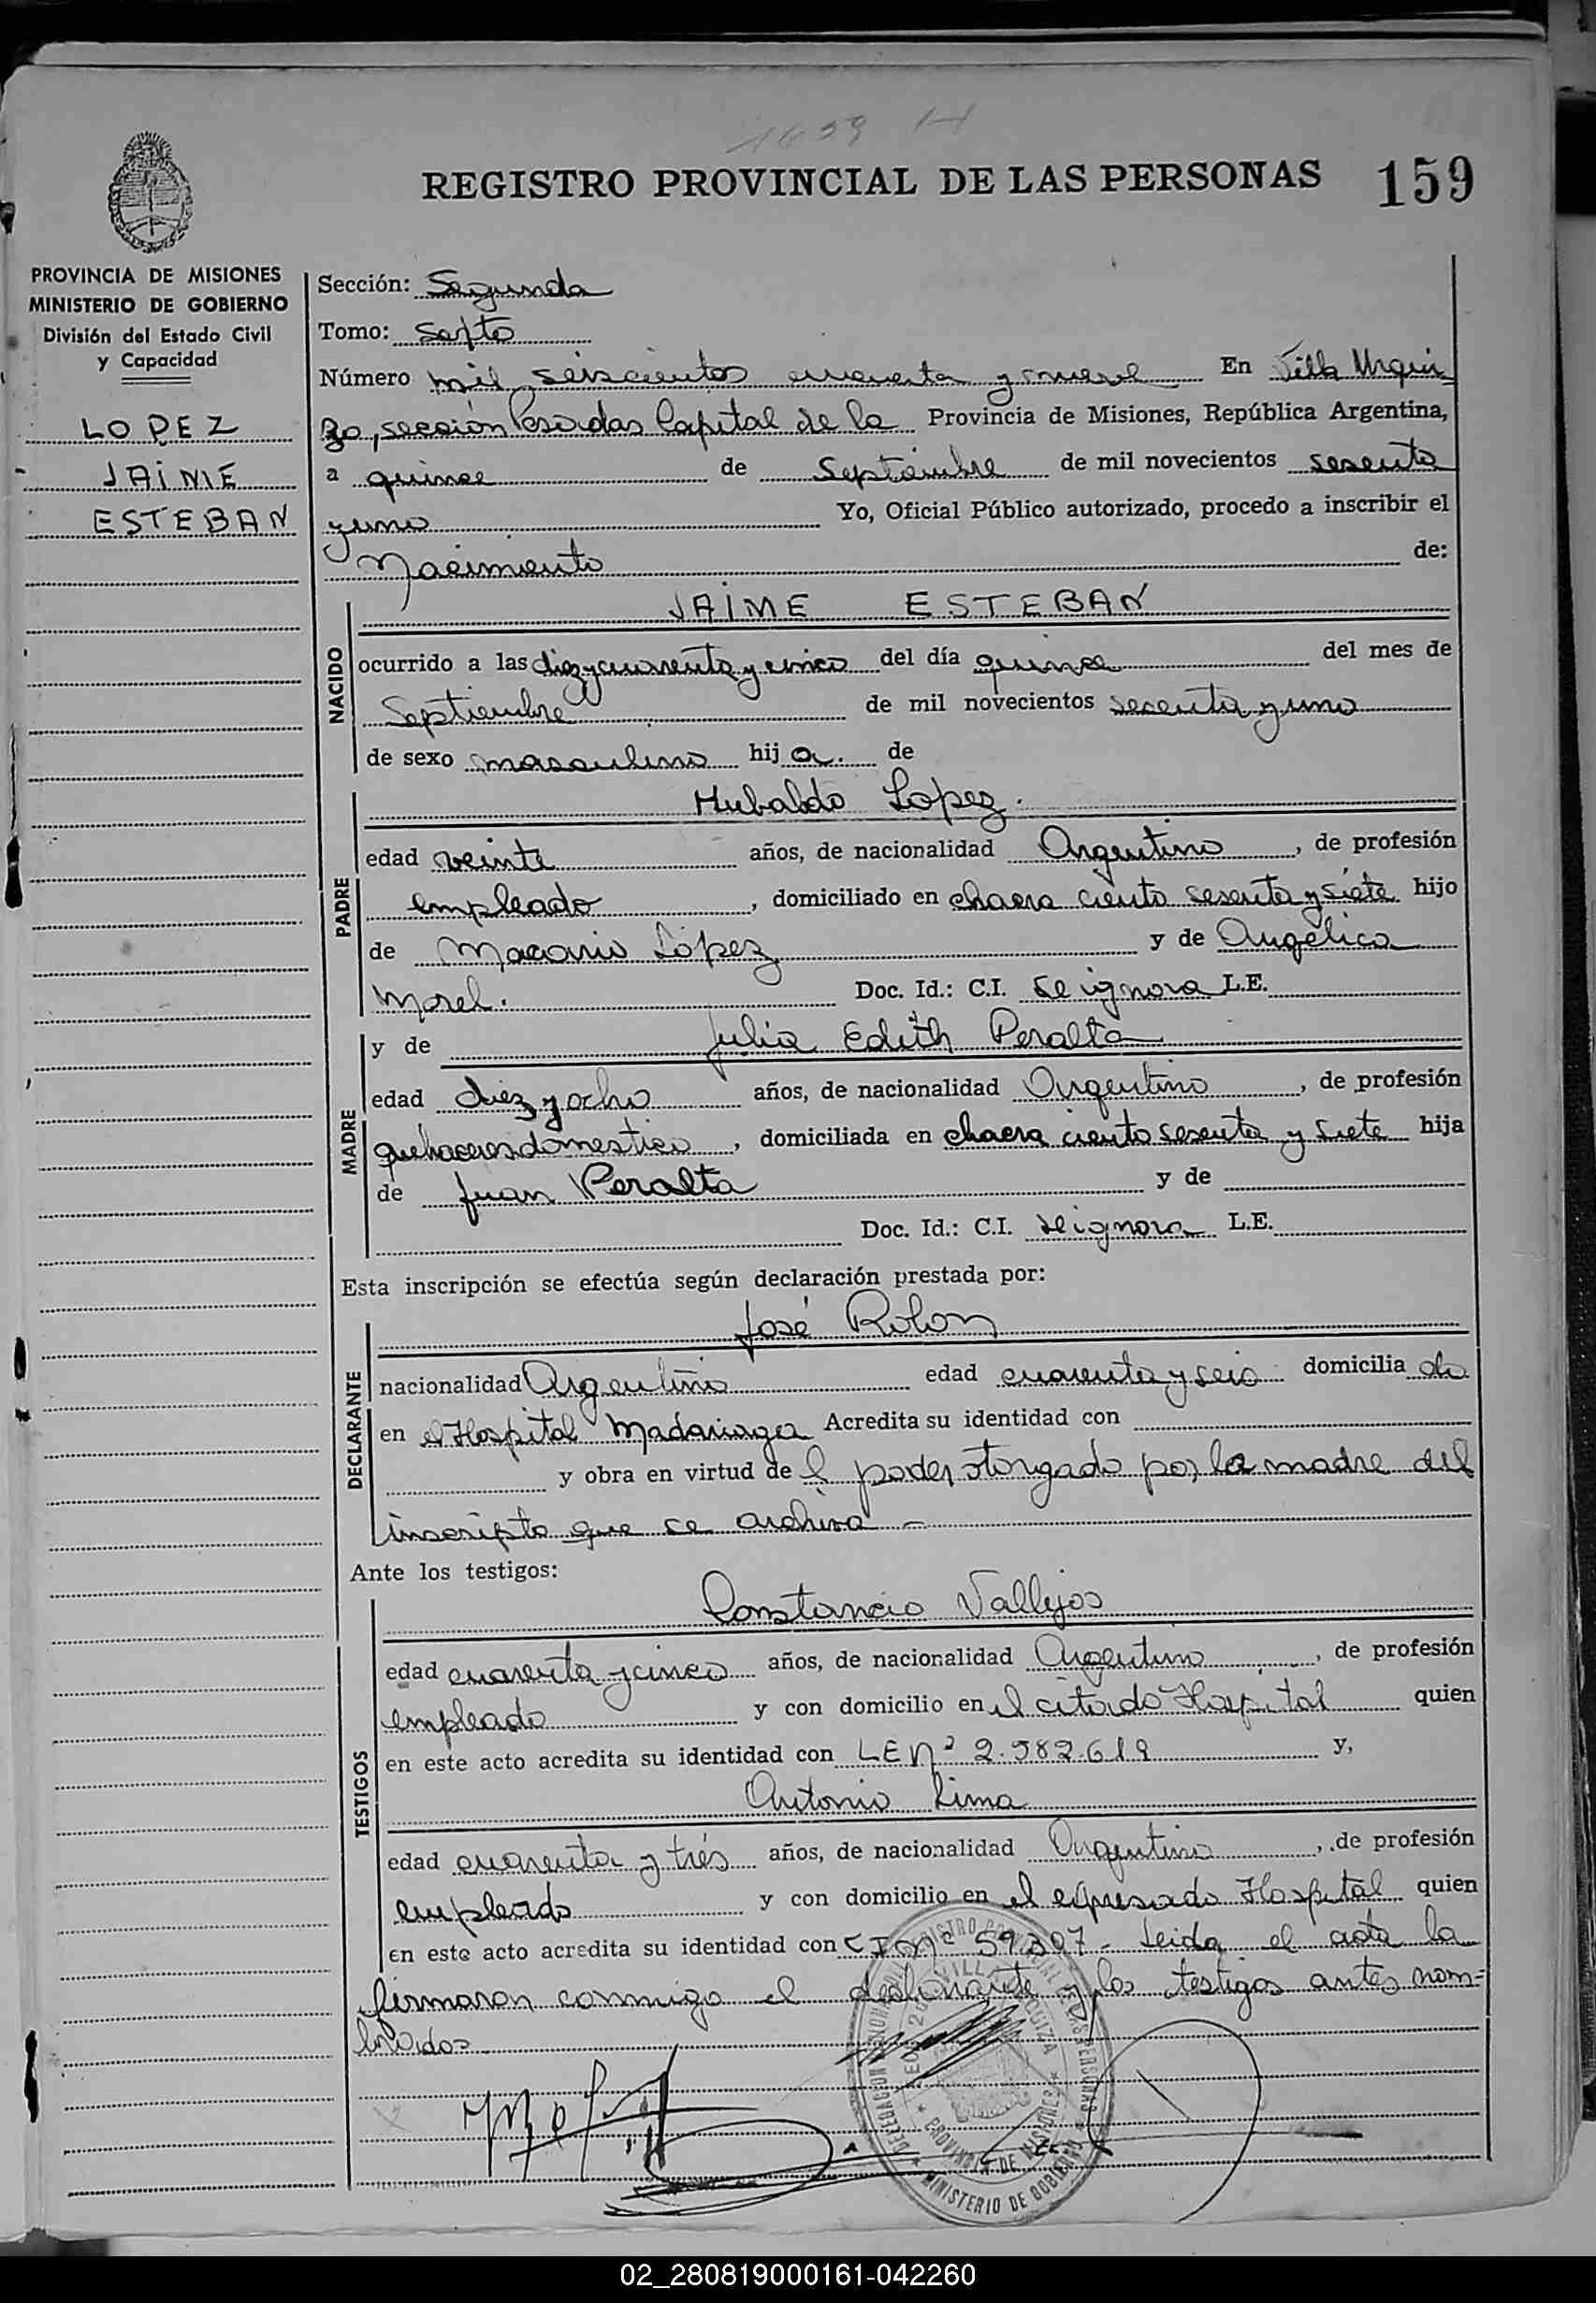 1639 H
REGISTRO PROVINCIAL DE LAS PERSONAS 159
PROVINCIA DE MISIONES
MINISTERIO DE GOBIERNO
División del Estado Civil
y Capacidad
LOPEZ
JAIME
ESTEBAN
Sección: Segunda
Tomo: Septo
Número mil seiscientos cuarenta y nueve En Villa Urqui
za, sección Posadas Capital de la Provincia de Misiones, República Argentina,
a quince de Septiembre de mil novecientos sesenta
y uno Yo, Oficial Público autorizado, procedo a inscribir el
Nacimiento de:
JAIME ESTEBAN
NACIDO
ocurrido a las diez y cuarenta y cinco del día quince del mes de
Septiembre de mil novecientos sesenta y uno
de sexo masculino hij o. de
Hubaldo Lopez.
PADRE
edad veinte años, de nacionalidad Argentino, de profesión
empleado, domiciliado en chacra ciento sesenta y siete hijo
de Macario López y de Angélica
Morel. Doc. Id.: C.I. se ignora L.E.
y de Julia Edith Peralta
MADRE
edad diez y ocho años, de nacionalidad Argentino, de profesión
quehaceres domestico, domiciliada en chacra ciento sesenta y siete hija
de Juan Peralta y de
Doc. Id.: C.I. se ignora L.E.
Esta inscripción se efectúa según declaración prestada por:
José Rolon
DECLARANTE
nacionalidad Argentino edad cuarenta y seis domicilia do
en el Hospital Madariaga Acredita su identidad con
y obra en virtud de l poder otorgado por la madre del
inscripto que se archiva –
Ante los testigos:
Constancio Vallejos
TESTIGOS
edad cuarenta y cinco años, de nacionalidad Argentino, de profesión
empleado y con domicilio en el citado Hospital quien
en este acto acredita su identidad con LE Nº 2.982.619 y,
Antonio Lima
edad cuarenta y trés años, de nacionalidad Argentino, de profesión
empleado y con domicilio en el expresado Hospital quien
en este acto acredita su identidad con C I Nº 59.307 - Leida el acta la
firmaron conmigo el declarante y los testigos antes nom=
brados
DELEGACION REGISTRO PROVINCIAL DE LAS PERSONAS
VILLA URQUIZA
PROVINCIA DE MISIONES
MINISTERIO DE GOBIERNO
02_280819000161-042260